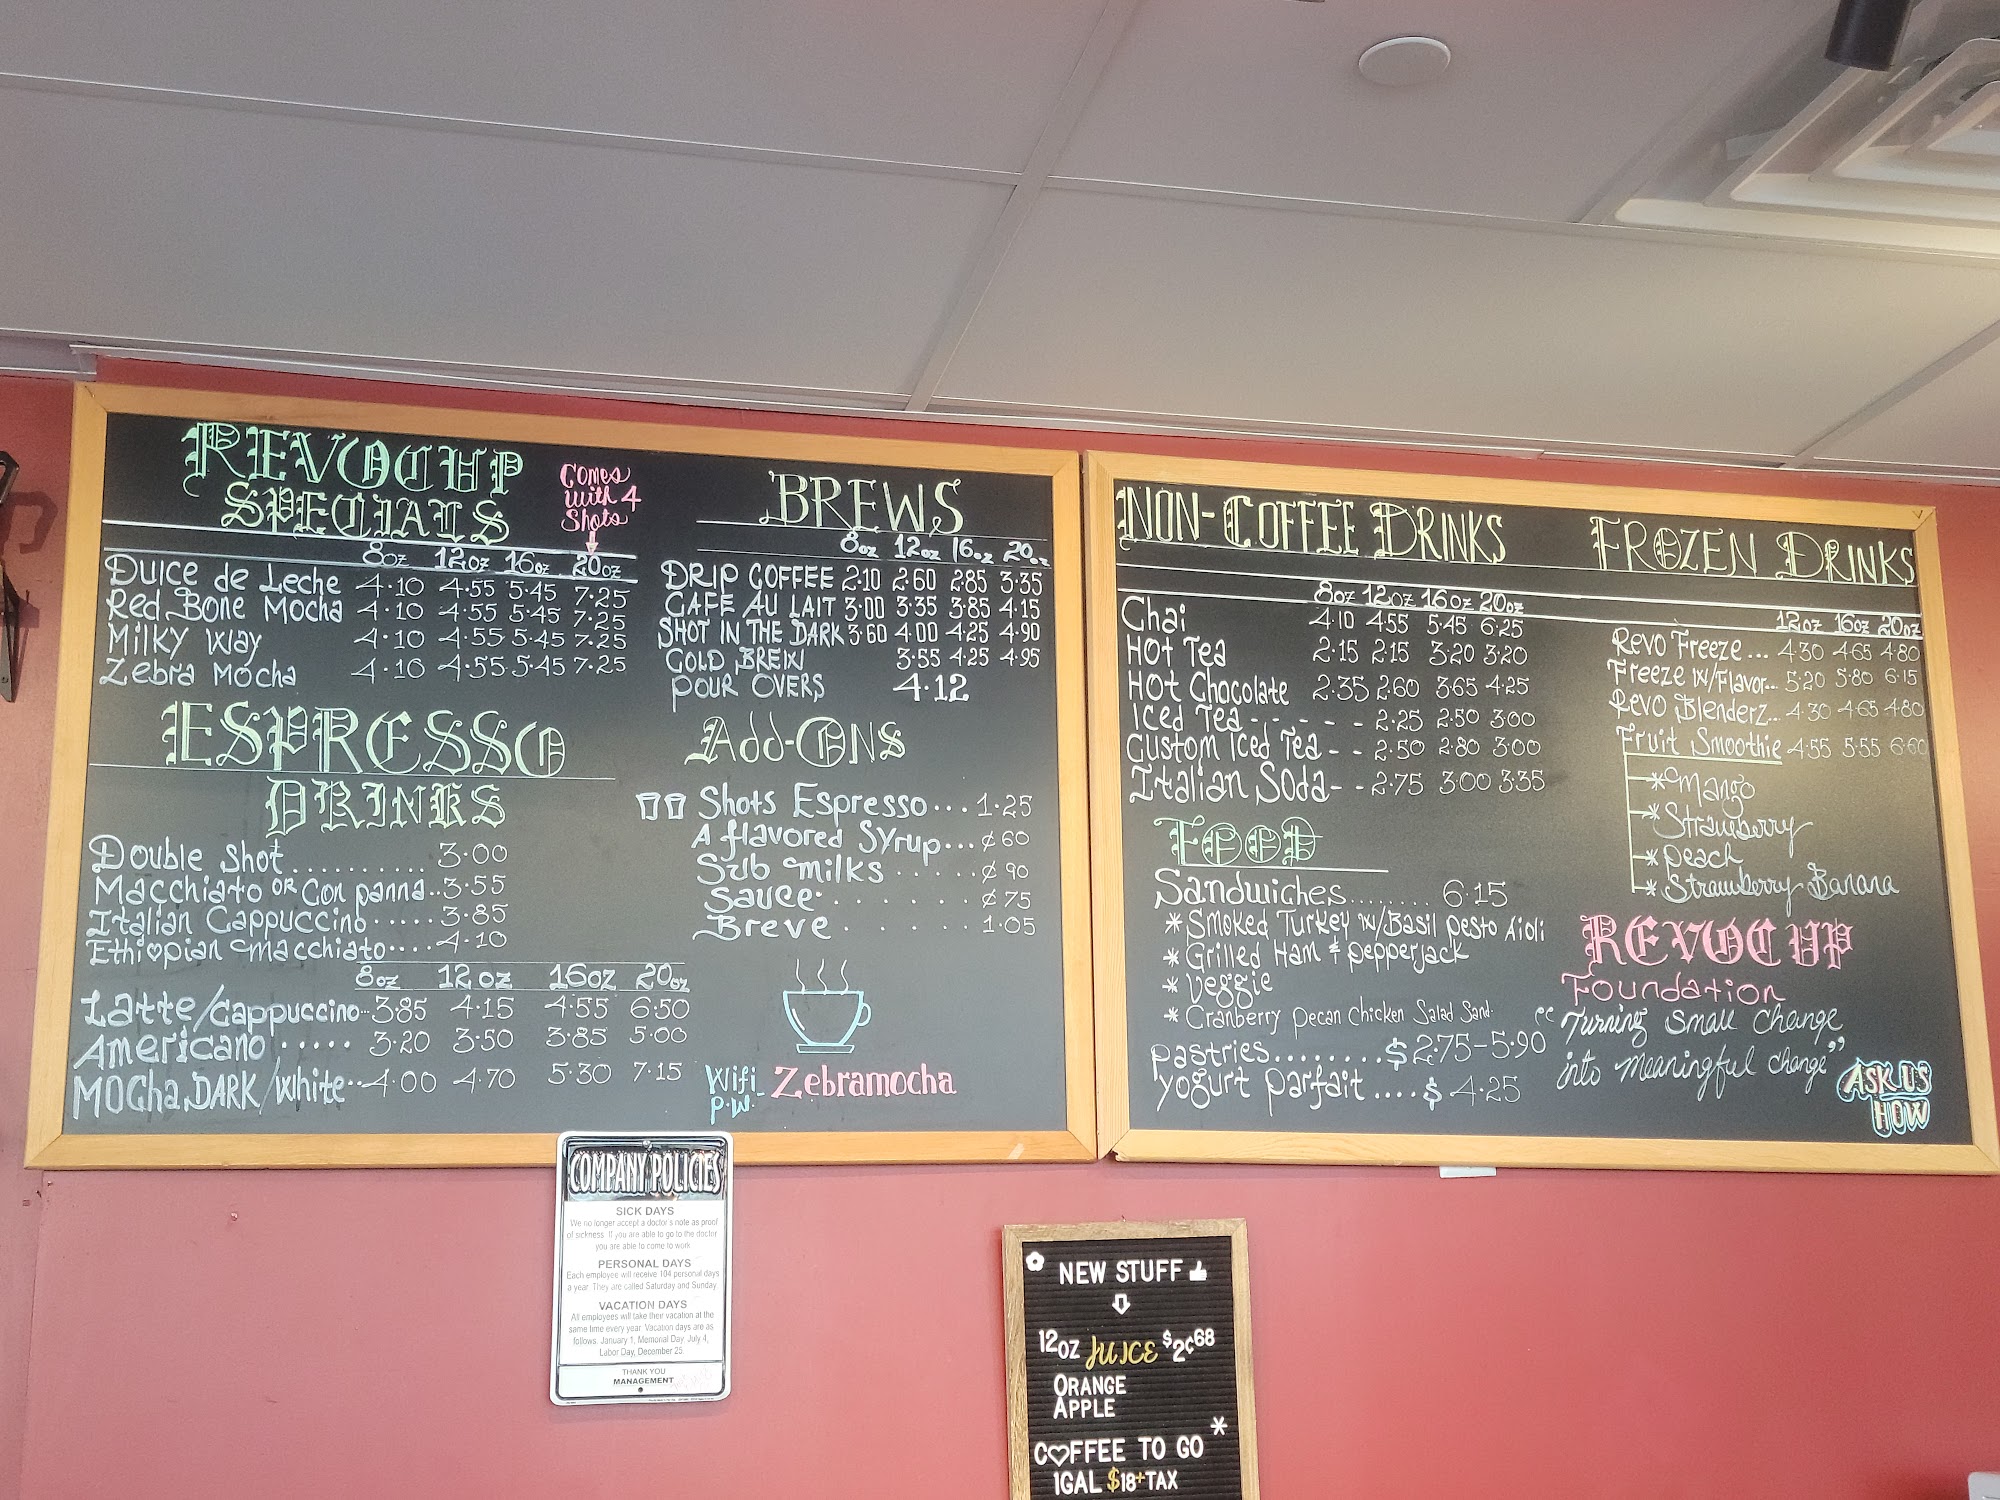 REVOCUP
SPECIALS
Comes
with 4
Shots
8oz 12oz 16oz 20oz
Dulce de Leche 4.10 4.55 5.45 7.25
Red Bone Mocha 4.10 4.55 5.45 7.25
Milky Way 4.10 4.55 5.45 7.25
Zebra Mocha 4.10 4.55 5.45 7.25
ESPRESSO
DRINKS
Double Shot.......... 3.00
Macchiato OR Con panna..3.55
Italian Cappuccino.....3.85
Ethiopian Macchiato....4.10
8oz 12oz 16oz 20oz
Latte/Cappuccino..3.85 4.15 4.55 6.50
Americano ..... 3.20 3.50 3.85 5.00
MOCha DARK/White..4.00 4.70 5.30 7.15
BREWS
8oz 12oz 16oz 20oz
DRIP COFFEE 2.10 2.60 2.85 3.35
CAFE AU LAIT 3.00 3.35 3.85 4.15
SHOT IN THE DARK 3.60 4.00 4.25 4.90
COLD BREW 3.55 4.25 4.95
POUR OVERS 4.12
Add-ONS
Shots Espresso... 1.25
A flavored Syrup...¢60
Sub Milks ......¢90
Sauce. ...... ¢75
Breve ...... 1.05
Wifi
P.W.- Zebramocha
NON-COFFEE DRINKS
8oz 12oz 16oz 20oz
Chai 4.10 4.55 5.45 6.25
Hot Tea 2.15 2.15 3.20 3.20
Hot Chocolate 2.35 2.60 3.65 4.25
Iced Tea - - - - - - 2.25 2.50 3.00
Custom Iced Tea - - 2.50 2.80 3.00
Italian Soda- - 2.75 3.00 3.35
FOOD
Sandwiches........ 6.15
* Smoked Turkey w/Basil Pesto Aioli
* Grilled Ham & pepperjack
* Veggie
* Cranberry Pecan Chicken Salad Sand.
Pastries.........$2.75-5.90
Yogurt Parfait ....$ 4.25
FROZEN DRINKS
12oz 16oz 20oz
Revo Freeze... 4.30 4.65 4.80
Freeze w/Flavor... 5.20 5.80 6.15
Revo Blenderz... 4.30 4.65 4.80
Fruit Smoothie 4.55 5.55 6.60
*Mango
*Strawberry
*Peach
*Strawberry Banana
REVOCUP
Foundation
"Turning small change
into meaningful change"
ASK US
HOW
COMPANY POLICIES
SICK DAYS
We no longer accept a doctor's note as proof
of sickness. If you are able to go to the doctor
you are able to come to work
PERSONAL DAYS
Each employee will receive 104 personal days
a year. They are called Saturday and Sunday.
VACATION DAYS
All employees will take their vacation at the
same time every year. Vacation days are as
follows: January 1, Memorial Day, July 4,
Labor Day, December 25.
THANK YOU
MANAGEMENT
NEW STUFF
12OZ JUICE $2¢68
ORANGE
APPLE
C♡FFEE TO GO *
1GAL $18+TAX